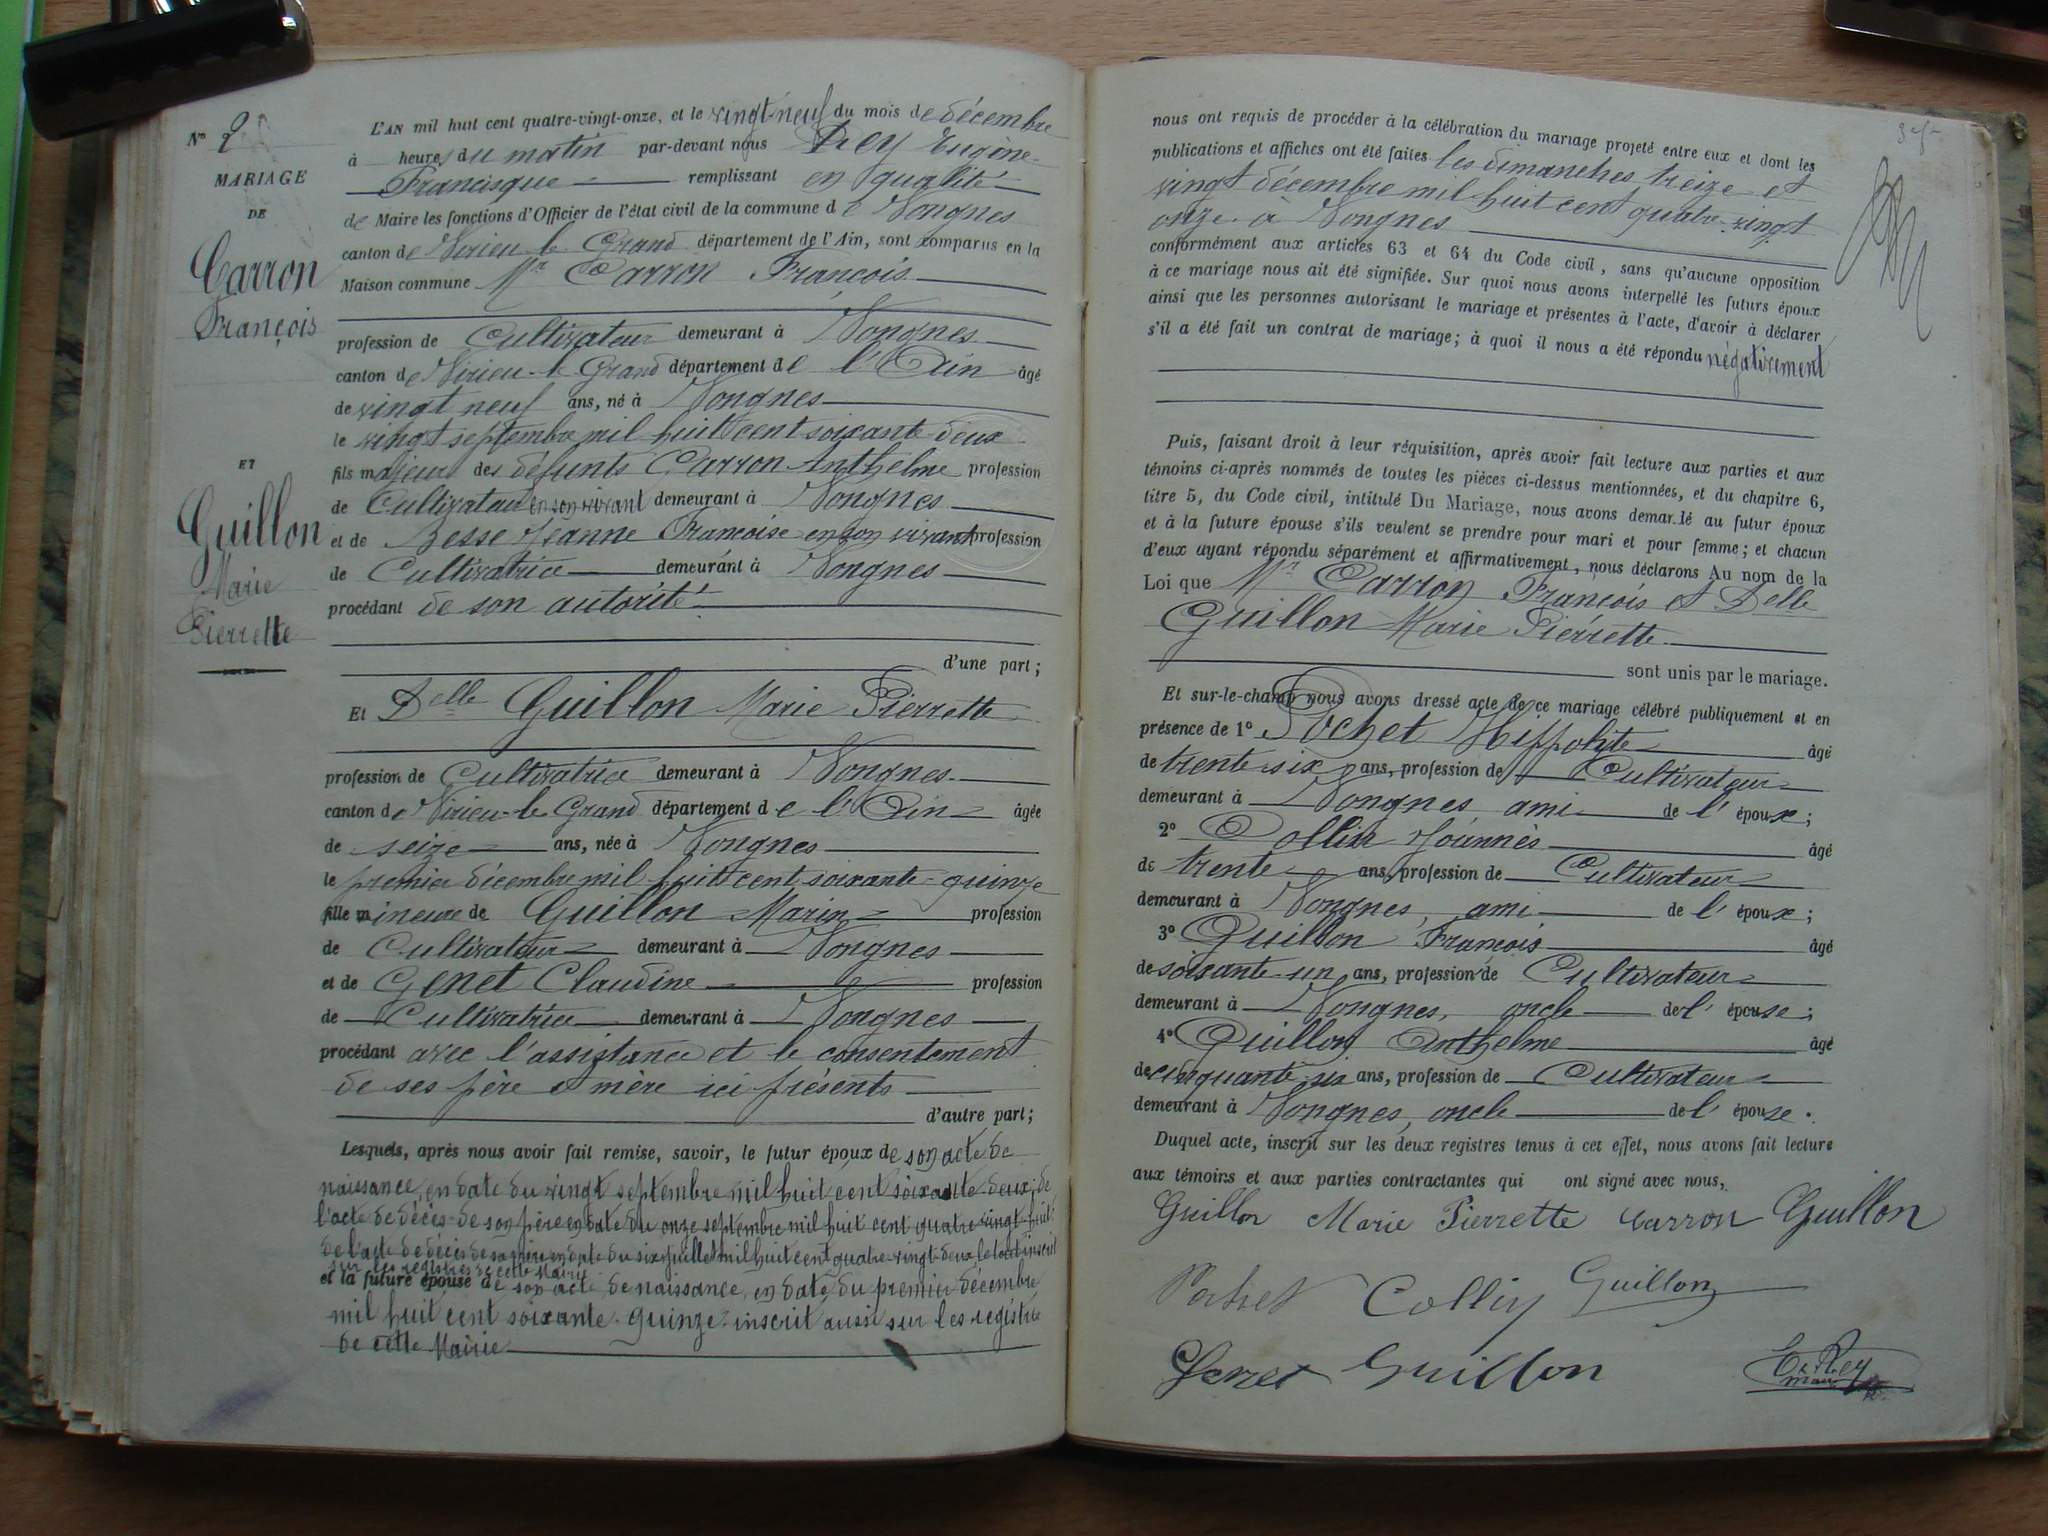 N° 2
MARIAGE
DE
Carron
François
ET
Guillon
Marie
Pierrette
L'AN mil huit cent quatre-vingt-onze, et le vingt-neuf du mois de décembre
à heures du matin par-devant nous Rey Eugène
Francisque remplissant en qualité
de Maire les fonctions d'Officier de l'état civil de la commune de Vongnes
canton de Virieu-le-Grand département de l'Ain, sont comparus en la
Maison commune Mr Carron François
profession de Cultivateur demeurant à Vongnes
canton de Virieu-le-Grand département de l'Ain âgé
de vingt neuf ans, né à Vongnes
le vingt septembre mil huit cent soixante-deux
fils majeur des défunts Carron Anthelme profession
de Cultivateur en son vivant demeurant à Vongnes
et de Besse Jeanne Françoise en son vivant profession
de Cultivatrice demeurant à Vongnes
procédant de son autorité
d'une part;
Et Delle Guillon Marie Pierrette
profession de Cultivatrice demeurant à Vongnes
canton de Virieu-le-Grand département de l'Ain âgée
de seize ans, née à Vongnes
le premier décembre mil huit cent soixante-quinze
fille mineure de Guillon Marin profession
de Cultivateur demeurant à Vongnes
et de Genet Claudine profession
de Cultivatrice demeurant à Vongnes
procédant avec l'assistance et le consentement
de ses père et mère ici présents
d'autre part;
Lesquels, après nous avoir fait remise, savoir, le futur époux de son acte de
naissance, en date du vingt septembre mil huit cent soixante-deux, de
l'acte de décès de son père en date du onze septembre mil huit cent quatre-vingt-huit
de l'acte de décès de sa mère en date du six juillet mil huit cent quatre-vingt-deux le tout inscrit
sur les registres de cette Mairie
et la future épouse de son acte de naissance, en date du premier décembre
mil huit cent soixante-quinze inscrit aussi sur les registres
de cette Mairie
nous ont requis de procéder à la célébration du mariage projeté entre eux et dont les
publications et affiches ont été faites les dimanches treize et
vingt décembre mil huit cent quatre-vingt
onze à Vongnes
conformément aux articles 63 et 64 du Code civil, sans qu'aucune opposition
à ce mariage nous ait été signifiée. Sur quoi nous avons interpellé les futurs époux
ainsi que les personnes autorisant le mariage et présentes à l'acte, d'avoir à déclarer
s'il a été fait un contrat de mariage; à quoi il nous a été répondu négativement
Puis, faisant droit à leur réquisition, après avoir fait lecture aux parties et aux
témoins ci-après nommés de toutes les pièces ci-dessus mentionnées, et du chapitre 6,
titre 5, du Code civil, intitulé Du Mariage, nous avons demandé au futur époux
et à la future épouse s'ils veulent se prendre pour mari et pour femme; et chacun
d'eux ayant répondu séparément et affirmativement, nous déclarons Au nom de la
Loi que Mr Carron François et Delle
Guillon Marie Pierrette
sont unis par le mariage.
Et sur-le-champ nous avons dressé acte de ce mariage célébré publiquement et en
présence de 1° Pochet Hippolyte âgé
de trente-six ans, profession de Cultivateur
demeurant à Vongnes ami de l'époux;
2° Collin âgé
de trente ans, profession de Cultivateur
demeurant à Vongnes, ami de l'époux;
3° Guillon François âgé
de soixante-un ans, profession de Cultivateur
demeurant à Vongnes, oncle de l'épouse;
4° Guillon Anthelme âgé
de cinquante six ans, profession de Cultivateur
demeurant à Vongnes, oncle de l'épouse.
Duquel acte, inscrit sur les deux registres tenus à cet effet, nous avons fait lecture
aux témoins et aux parties contractantes qui ont signé avec nous,
Guillon Marie Pierrette Carron Guillon
Pochet Collin Guillon
Genet Guillon E. Rey
maire